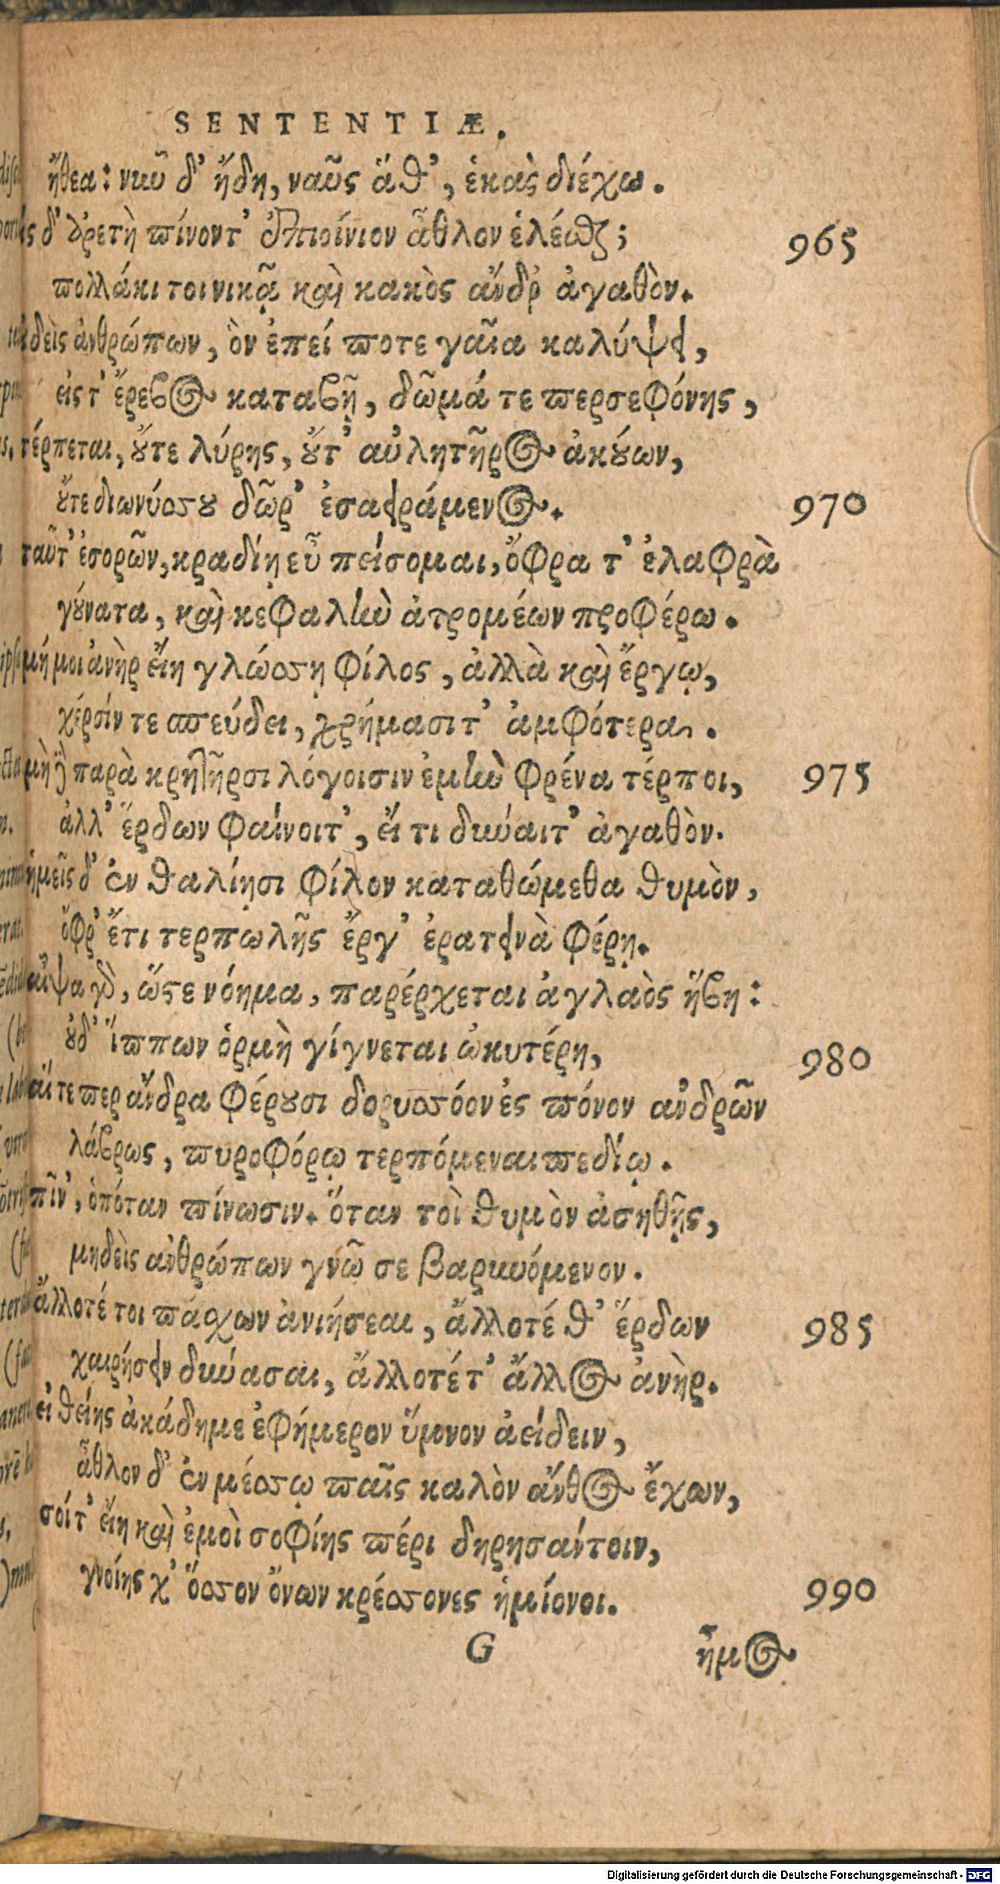 SENTENTIÆ.
ἤθεα: νῦν δ' ἤδη, ναῦς ἅθ', ἑκὰς διέχω.
ς δ' ἀρετὴ πίνοντ' ἐπιοίνιον ἆθλον ἑλέσθαι; 965
πολλάκι τοι νικᾷ καὶ κακὸς ἄνδρ' ἀγαθὸν.
δεὶς ἀνθρώπων, ὃν ἐπεί ποτε γαῖα καλύψει,
εἰς τ' ἔρεβος καταβῇ, δῶμά τε περσεφόνης,
τέρπεται, οὔτε λύρης, οὔτ' αὐλητῆρος ἀκούων,
οὔτε διωνύσσου δῶρ' ἐσαειράμενος. 970
ταῦτ' ἐσορῶν, κραδίῃ εὖ πείσομαι, ὄφρα τ' ἐλαφρὰ
γούνατα, καὶ κεφαλὴν ἀτρομέων προφέρω.
μή μοι ἀνὴρ εἴη γλώσσῃ φίλος, ἀλλὰ καὶ ἔργῳ,
χέρσίν τε σπεύδει, χρήμασι τ' ἀμφότερα.
μὴ δὲ παρὰ κρητῆρσι λόγοισιν ἐμὴν φρένα τέρποι, 975
ἀλλ' ἔρδων φαίνοιτ', εἴ τι δύναιτ' ἀγαθὸν.
ἡμεῖς δ' ἐν θαλίῃσι φίλον καταθώμεθα θυμὸν,
ὄφρ' ἔτι τερπωλῆς ἔργ' ἐρατεινὰ φέρῃ.
αἶψα γὰρ, ὥστε νόημα, παρέρχεται ἀγλαὸς ἥβη:
οὐδ' ἵππων ὁρμὴ γίγνεται ὠκυτέρη, 980
αἵ τε περ ἄνδρα φέρουσι δορυσσόον ἐς πόνον ἀνδρῶν
λάβρως, πυροφόρῳ τερπόμεναι πεδίῳ.
πῖν', ὁπόταν πίνωσιν. ὅταν τοὶ θυμὸν ἀσηθῇς,
μηδεὶς ἀνθρώπων γνῷ σε βαρυνόμενον.
ἄλλοτέ τοι πάσχων ἀνιήσεαι, ἄλλοτέ θ' ἔρδων 985
χαιρήσειν δύνασαι, ἄλλοτέ τ' ἄλλος ἀνὴρ.
εἰ θείης ἀκάδημε ἐφήμερον ὕμνον ἀείδειν,
ἆθλον δ' ἐν μέσσῳ παῖς καλὸν ἄνθος ἔχων,
σοί τ' εἴη καὶ ἐμοὶ σοφίης πέρι δηρησάντοιν,
γνοίης χ' ὅσσον ὄνων κρέσσονες ἡμίονοι. 990
G ἦμος
Digitalisierung gefördert durch die Deutsche Forschungsgemeinschaft - DFG